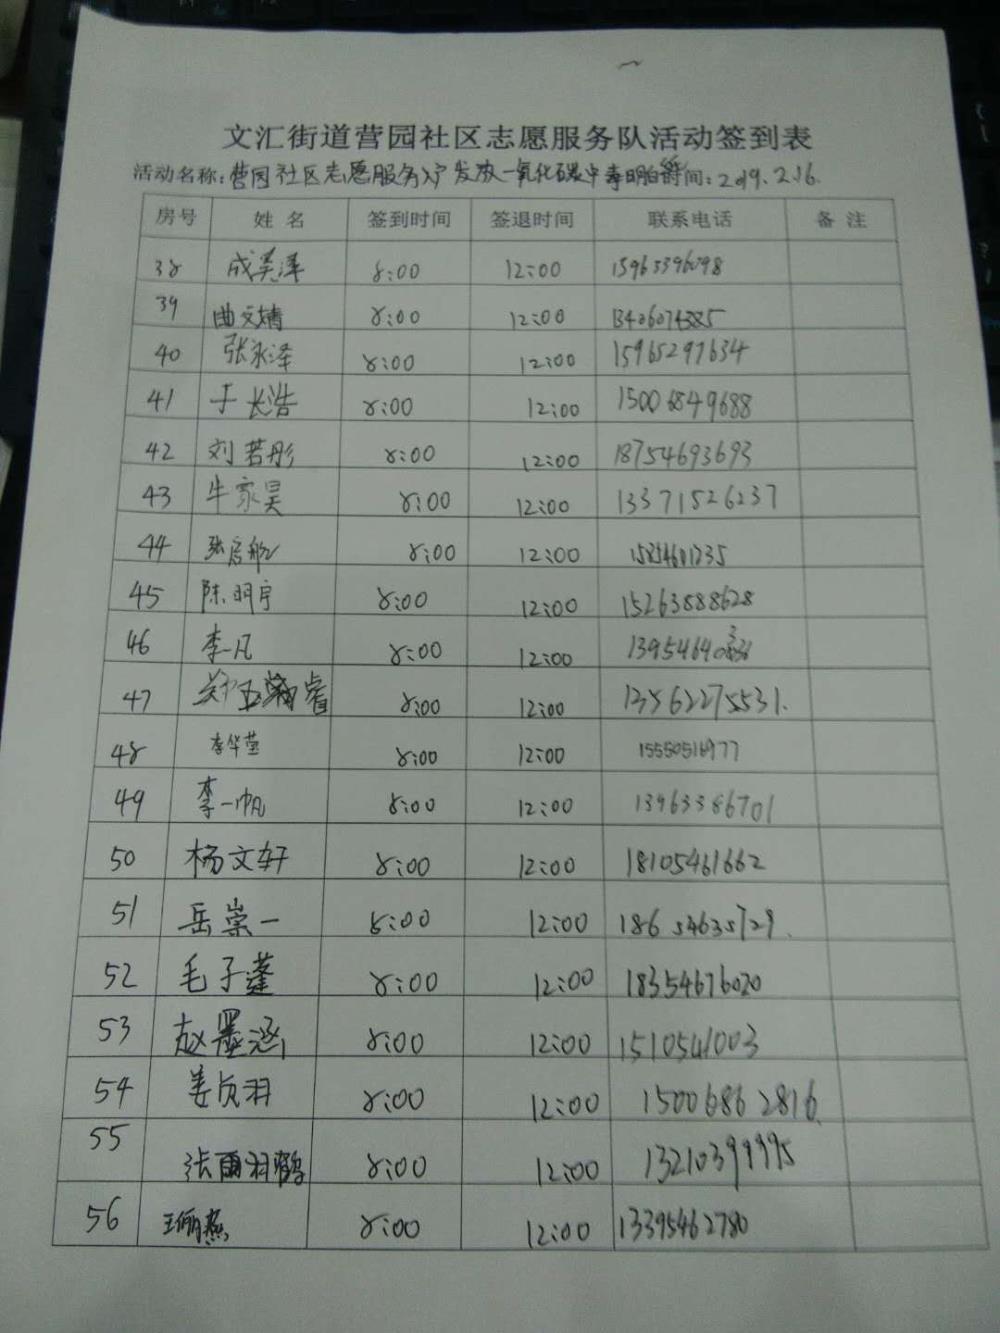 文汇街道营园社区志愿服务队活动签到表
活动名称:营园社区志愿服务 发放一氧化碳中毒明白 时间:2019.2.16.
房号 姓名 签到时间 签退时间 联系电话 备注
38 成美泽 8:00 12:00 15965396098
39 曲文婧 8:00 12:00
40 张永泽 8:00 12:00 15965297634
41 于长浩 8:00 12:00 15006849688
42 刘若彤 8:00 12:00 18754693693
43 牛家昊 8:00 12:00 13371526237
44 张启航 8:00 12:00
45 陈明宇 8:00 12:00 15263888628
46 李一凡 8:00 12:00
47 郑 睿 8:00 12:00
48 李华莹 8:00 12:00 15550516977
49 李一帆 8:00 12:00 13963386701
50 杨文轩 8:00 12:00 18105461662
51 岳崇一 8:00 12:00 18654635729.
52 毛子蓬 8:00 12:00 18354676020
53 赵墨涵 8:00 12:00 1510541003
54 姜贞羽 8:00 12:00 15006862816.
55 张雨羽鹤 8:00 12:00 13210399995
56 王俪燕 8:00 12:00 13395462780